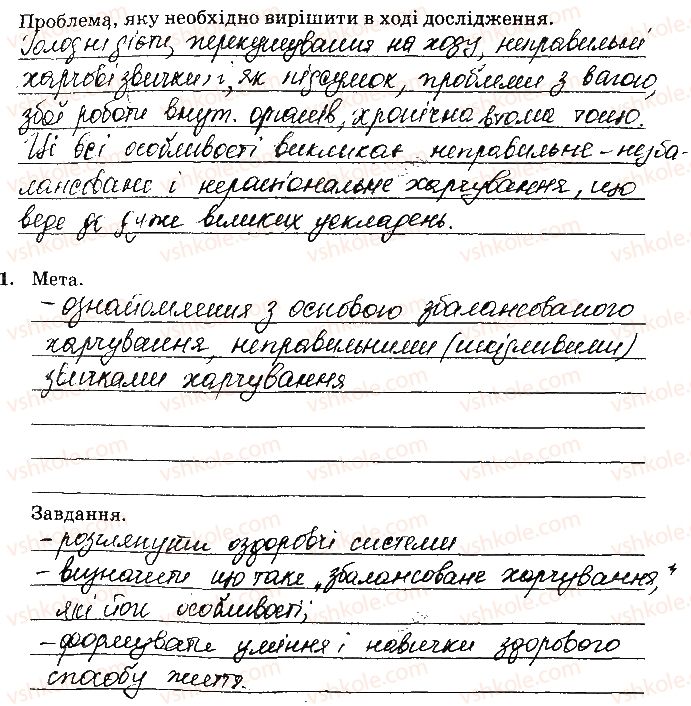 Проблема, яку необхідно вирішити в ході дослідження.
Голодні дієти, перекушування на ходу, неправильні
харчові звички і, як підсумок, проблеми з вагою,
збої роботи внут. органів, хронічна втома тощо.
Ці всі особливості викликає неправильне - незба-
лансоване і нераціональне харчування, що
веде до дуже великих ускладень.
1. Мета.
- ознайомлення з основою збалансованого
харчування, неправильними (шкідливими)
звичками харчування
Завдання.
- розглянути оздоровчі системи
- визначити що таке „збалансоване харчування,"
які йог особливості;
- формувати уміння і навички здорового
способу життя.